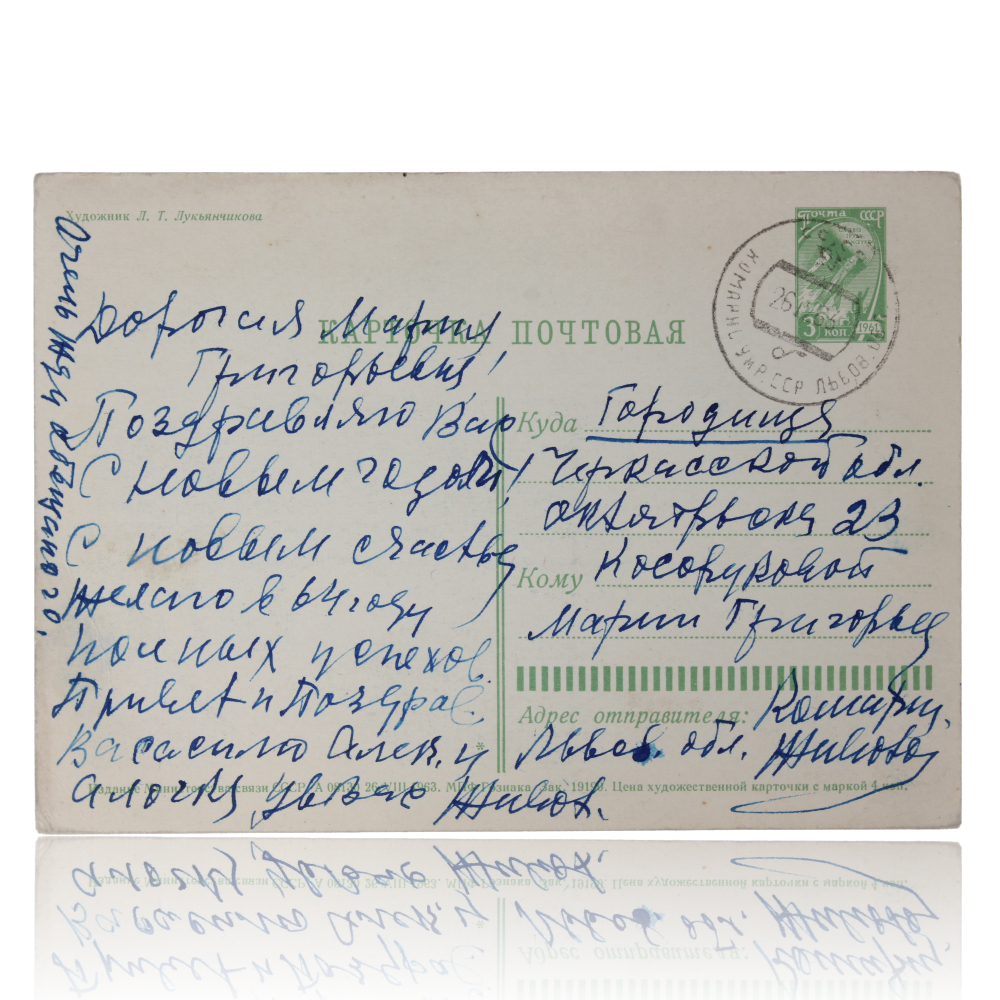 Художник Л. Т. Лукьянчикова
ПОЧТА СССР
3 КОП
1961
КАРТОЧКА ПОЧТОВАЯ
Дорогая Мария
Григорьевна!
Поздравляю Вас
С новым годом!
С новым счастьем
желаю в 64 году
полных успехов.
Привет и Поздрав.
Васасилию Алек. и
Алочку, уважаю Жихов.
Очень жду
Куда Городище
Черкасской обл.
октябрьская 23
Кому Косоруковой
Марии Григорьев
Адрес отправителя: Комарно,
Львов. обл.
Издание Министерства связи СССР. А 08139 26/VIII 1963. МПФ Гознака. Зак. 19199. Цена художественной карточки с маркой 4 коп.